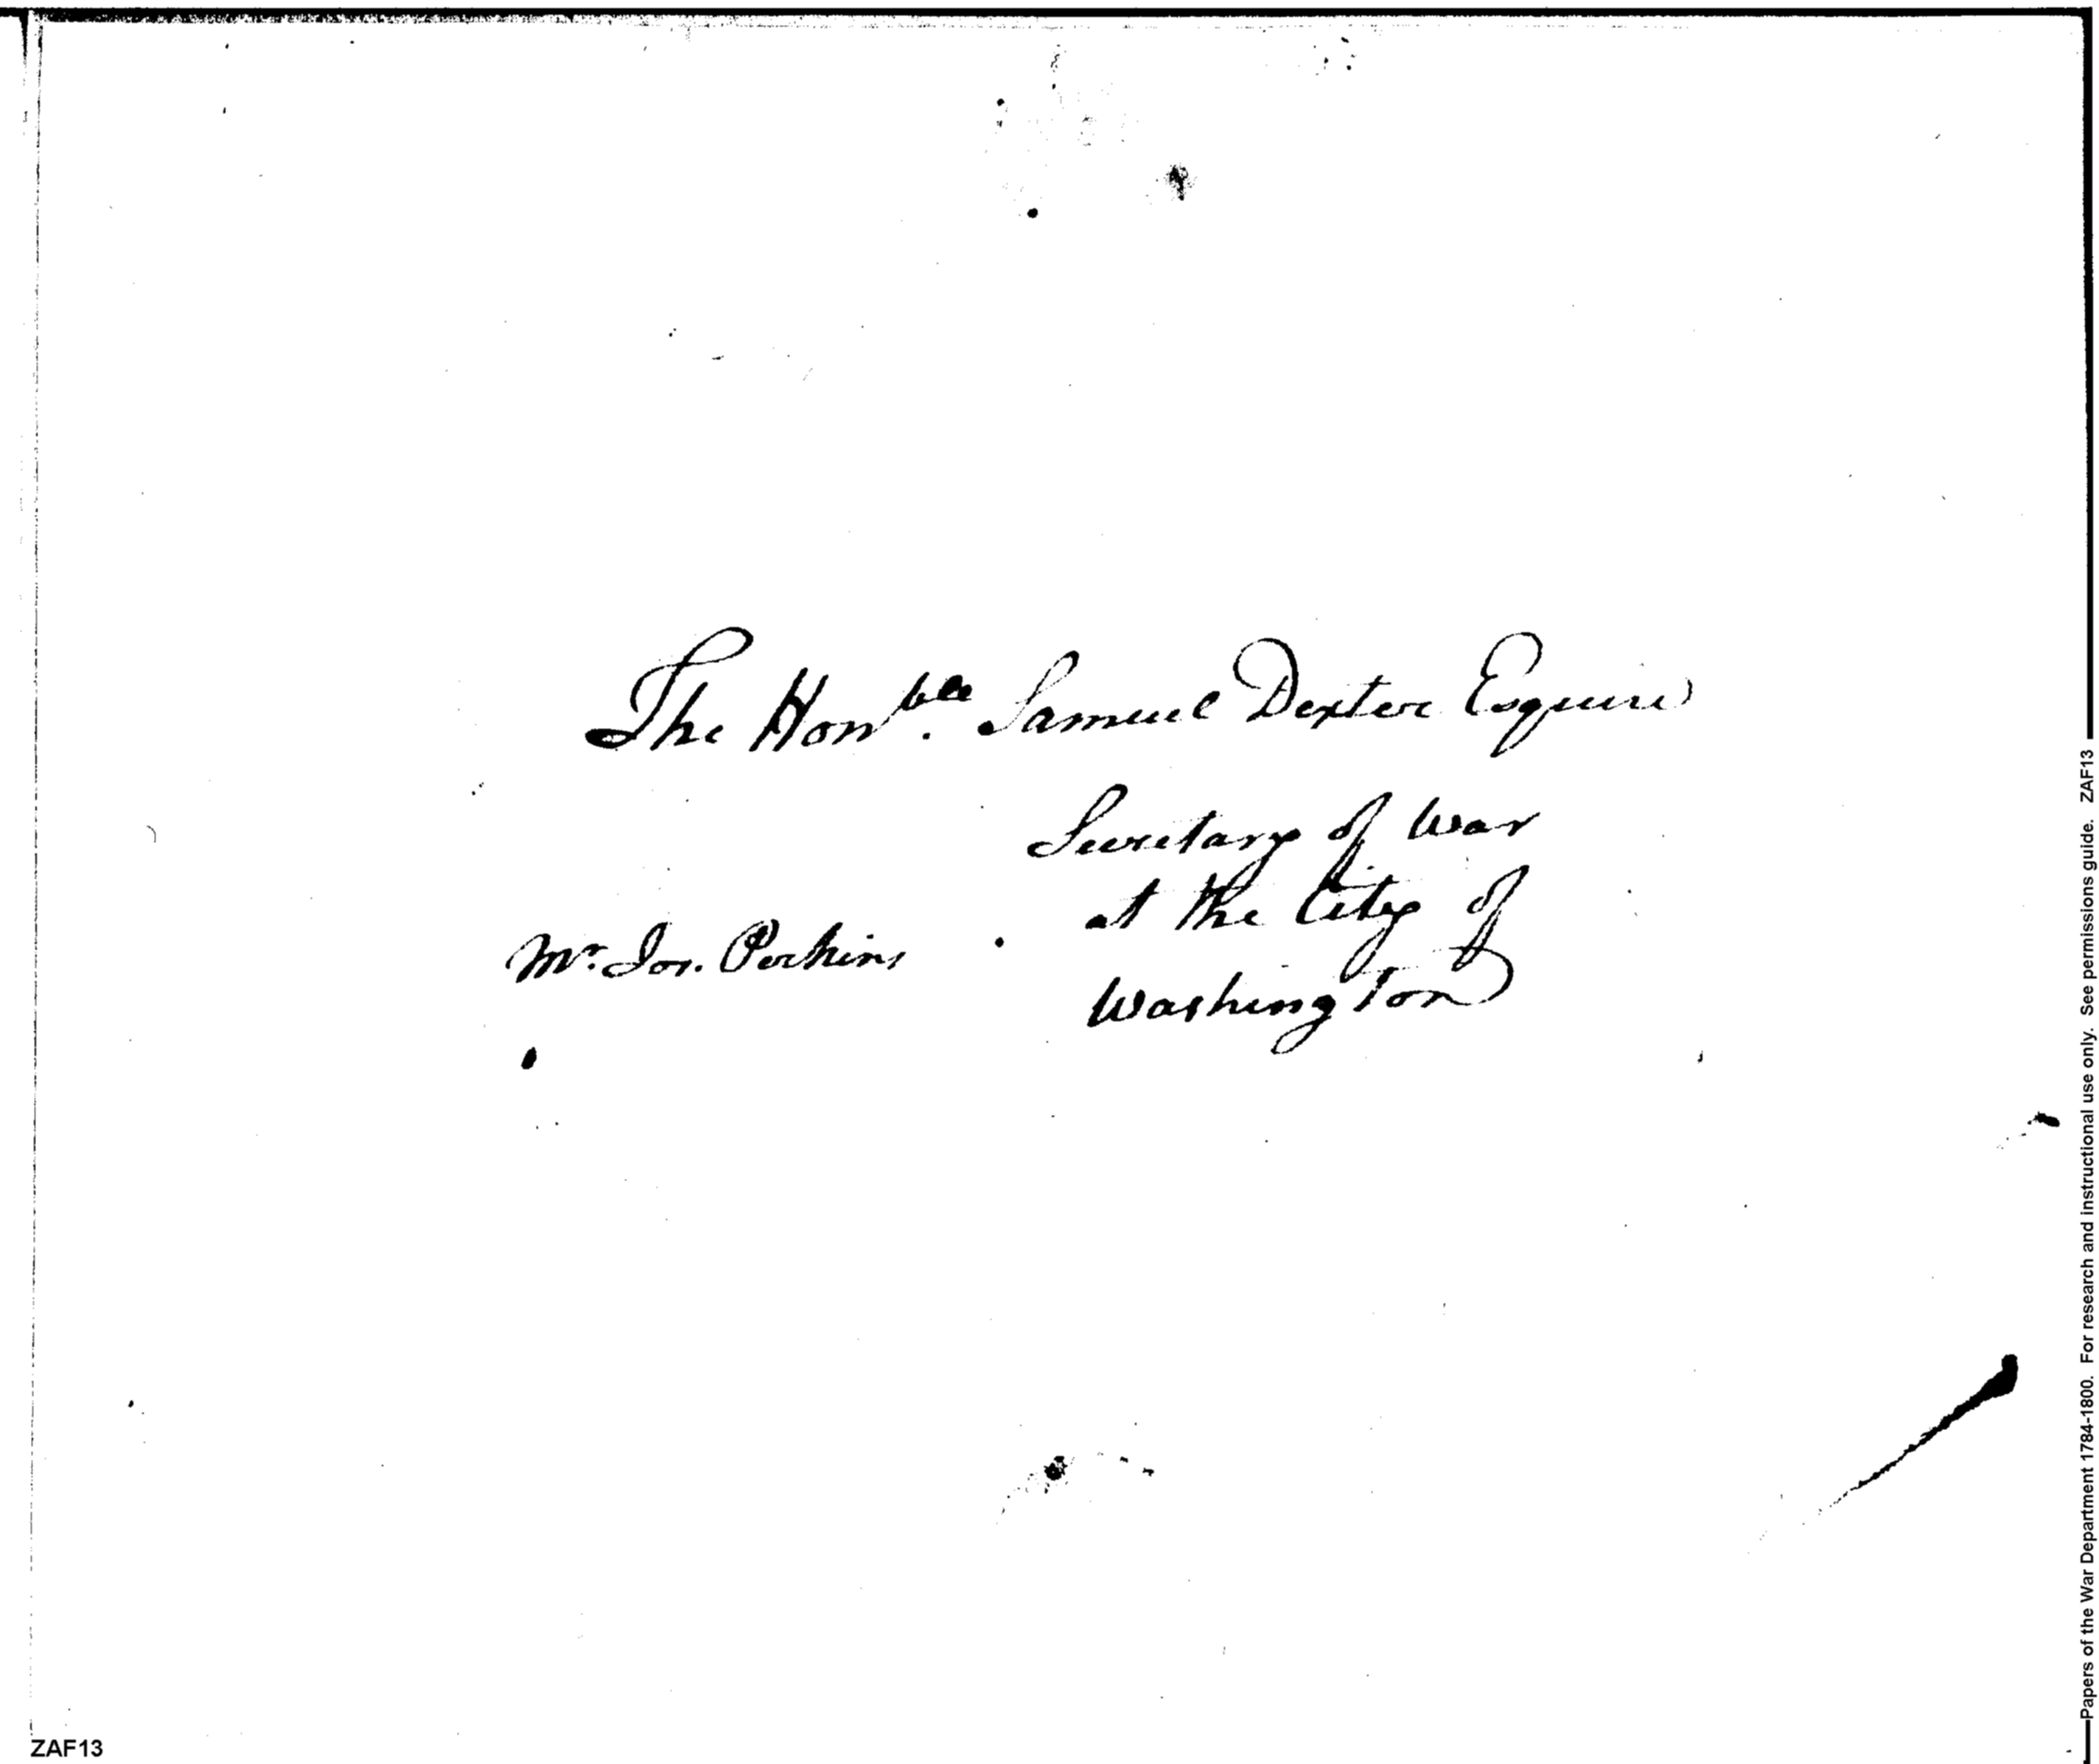 The Honble. Samuel Dexter Esquire
Secretary of War
at the City of
Mr. Jos. Perkins
Washington
ZAF13
Papers of the War Department 1784-1800. For research and instructional use only. See permissions guide. ZAF13